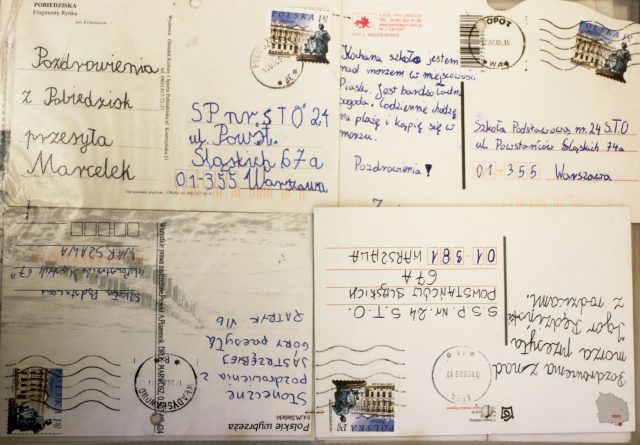 POBIEDZISKA
Fragmenty Rynku
Pozdrowienia
z Pobiedzisk
przesyła
Marcelek
POLSKA 1,30
SP nr „STO" 24
ul. Powst.
Śląskich 67a
01-355 Warszawa
Kochana szkoło jestem
nad morzem w miejscowości
Piaski. Jest bardzo ładna
pogoda. Codziennie chodzę
na plażę i kąpię się w
morzu.
Pozdrowienia!
SOPOT
POLSKA
Szkoła Podstawowa nr. 24 S.T.O
ul. Powstańców Śląskich 74a
01-355 Warszawa
Szkoła Podstawowa
ul. Powstańców Śląskich 67
WARSZAWA
Słoneczne
pozdrowienia z
JASTRZĘBIEJ
GÓRY przesyła
PATRYK VIb
Polskie wybrzeże
fot. W. Stelicki
WŁADYSŁAWOWO
POLSKA
S.S.P. Nr. 24 S.T.O.
POWSTAŃCÓW ŚLĄSKICH
67A
01 381 WARSZAWA
Pozdrowienia z nad
morza przesyła
Igor Kędzierski
z rodzicami.
POLSKA